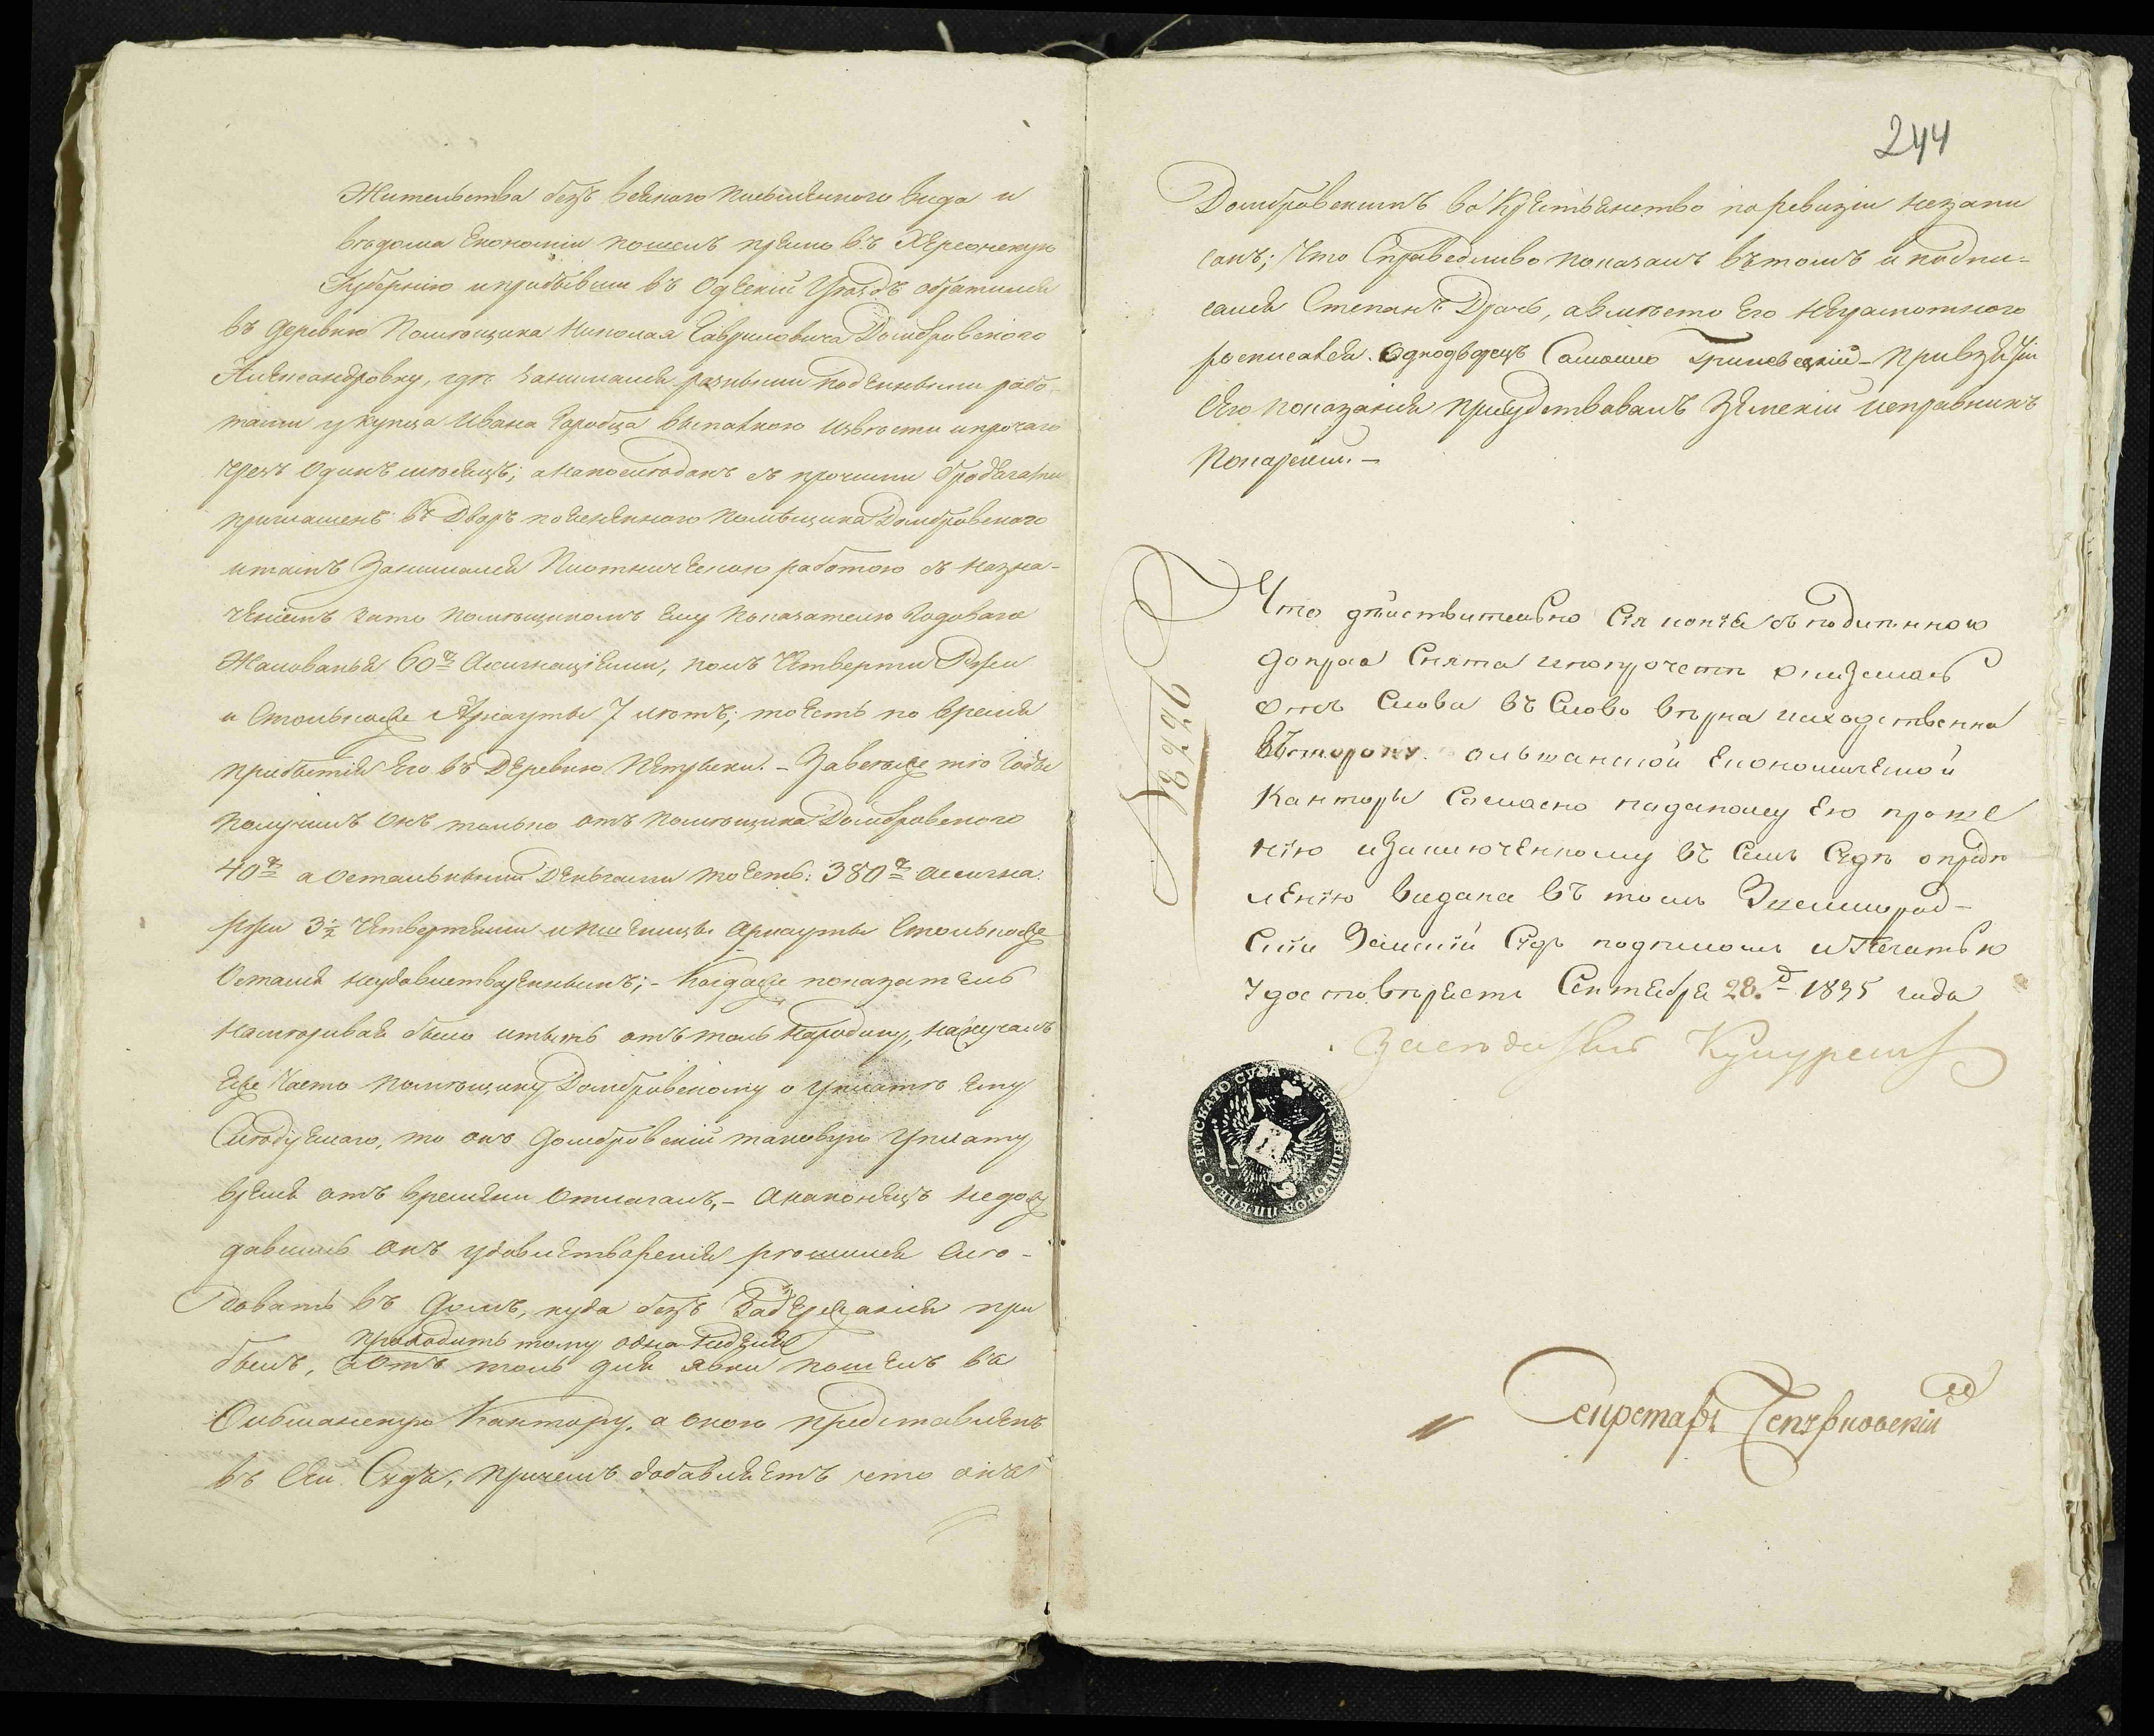 Жительства безъ всякаго письменного вида и
вѣдома Економіи пошолъ прямо въ Херсонскую
Губернію и прибывши въ Одескій Уѣздъ обратился
въ деревню Помѣщика Николая Гавриловича Домбровского
Александровку, где занимался разными подѣнными рабо-
тами у купца Ивана Горобца выпаткою извѣсти и прочаго
чрезъ одинъ мѣсяцъ; а напослѣдокъ съ прочими бродягами
приглашенъ въ Дворъ поясненного Помѣщика Домбровского
и тамъ Занимался Плотническою работою съ назна-
ченіемъ зато помѣщикомъ ему показателю Годоваго
Жалованья 60 Ассигнаціями, полъ Четверти Ржи
и Столькоже Арнауты 7 лѣтъ; тоесть по время
прибытія Его въ Деревню Петрыски. - За весьже тѣ Годы
получилъ Онъ только отъ помѣщика Домбровского
40 а остальными Деньгами тоесть: 380 ассигна.
Ржи 3½ Четвертями и пшеницы Арнауты Столькоже
Остался неудовлетворенымъ; - Когдаже показатель
намѣривая было итыть отъ толь народину, накучалъ
Еще Часто помѣщику Домбровскому о уплатѣ Ему
Слѣдуемаго, то онъ Домбровскій таковую Уплату
время отъ времени Отлагалъ, - Анаконецъ недож
давшись Онъ удовлетворенія решился Слѣ-
довать въ Домъ, куда безъ Задержанія при
проходитъ тому одна Недѣля
былъ, а отъ толь для явки пошелъ въ
Ольшанскую Кантору, а оною представленъ
въ Сей Судъ, причемъ добавляетъ что онъ
244
Домбровскимъ во Крестьянство по ревизіи незапи
санъ; Что Справедливо показалъ вътомъ и подпи-
сался Степанъ Драчъ, авмѣсто Его Неграмотного
росписался Однодворецъ Самойло - при взятіи
сего показанія присудствовалъ Земскій исправникъ
Что дѣйствительно Сія копія съ подлинного
допроса Снята и попрочетѣ
Отъ Слова въ Слово вѣрна исходственна
въ сторону ольшанской Економической
Канторы Согласно поданому Ею проше
нію изаключенному въ Семъ Судѣ опредѣ
ленію видана въ томъ Звенигород-
скій Земскій Судъ подписомъ и Печатью
Удостовѣряетъ Сентября 28 1835 года
Секретарь